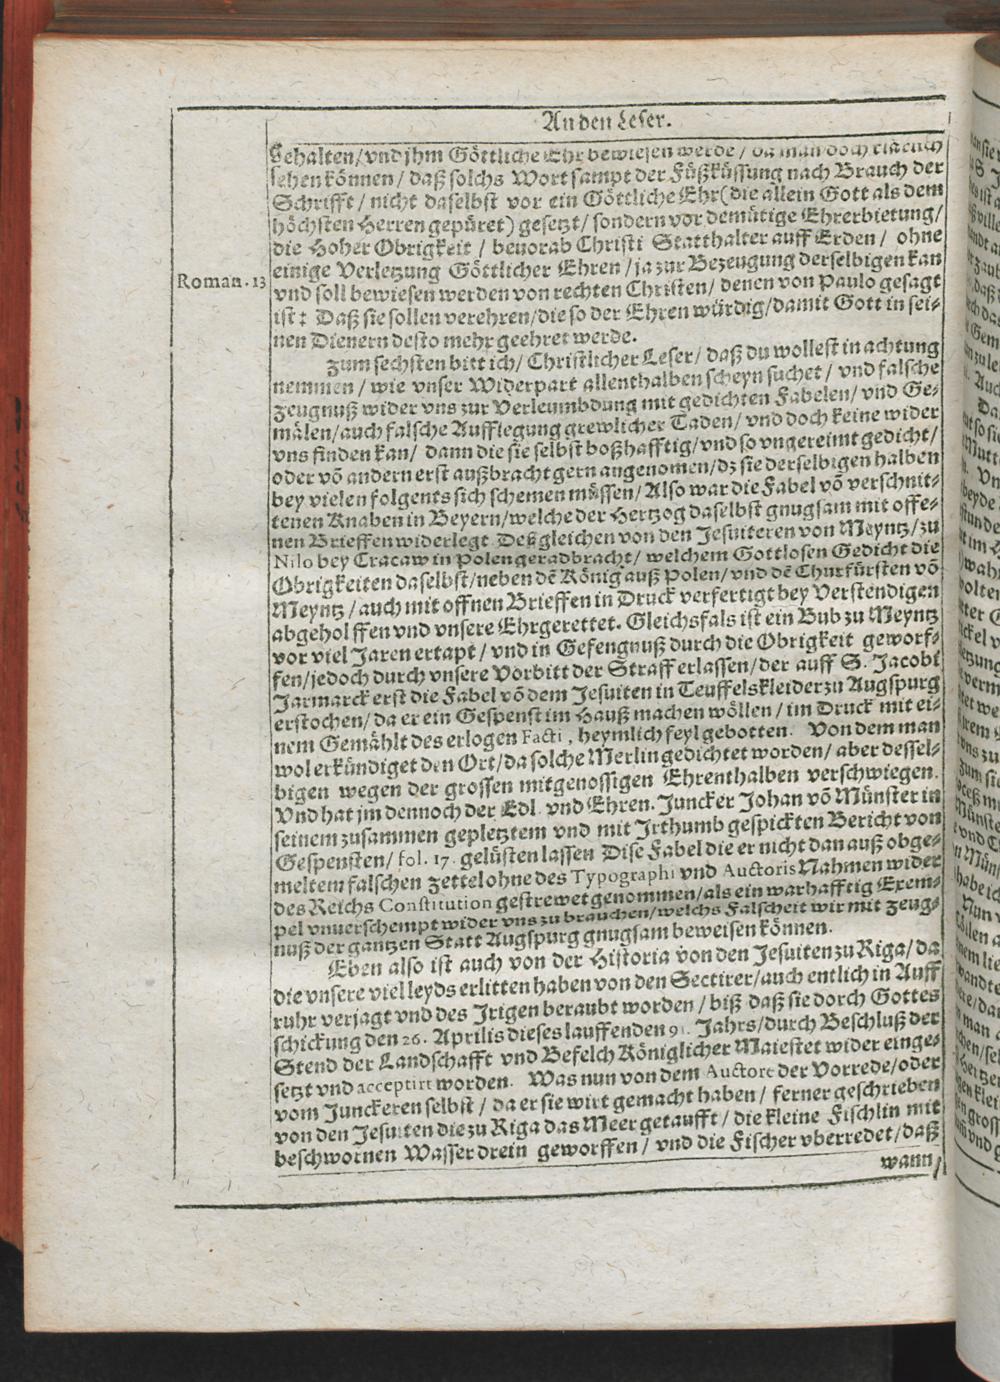 An den Leser.
gehalten/ vnd jhm Göttliche Ehr bewiesen werde / da man doch
sehen können / daß solchs Wort sampt der Füßküssung nach Brauch der
Schrifft / nicht daselbst vor ein Göttliche Ehr (die allein Gott als dem
höchsten Herren gepüret) gesetzt / sondern vor demütige Ehrerbietung/
die Hoher Obrigkeit / beuorab Christi Statthalter auff Erden / ohne
einige Verletzung Göttlicher Ehren / ja zur Bezeugung derselbigen kan
Roman. 13
vnd soll bewiesen werden von rechten Christen / denen von Paulo gesagt
ist: Daß sie sollen verehren/ die so der Ehren würdig/ damit Gott in sei-
nen Dienern desto mehr geehret werde.
Zum sechsten bitt ich/ Christlicher Leser/ daß du wollest in achtung
nemmen / wie vnser Widerpart allenthalben scheyn suchet / vnd falsche
zeugnuß wider vns zur Verleumbdung mit gedichten Fabelen/ vnd Ge-
mälen/ auch falsche Aufflegung grewlicher Taden/ vnd doch keine wider
vns finden kan/ dann die sie selbst boßhafftig/ vnd so vngereimt gedicht/
oder võ andern erst außbracht gern angenomen/ dz sie derselbigen halben
bey vielen folgents sich schemen müssen/ Also war die Fabel võ verschnit-
tenen Knaben in Beyern/ welche der Hertzog daselbst gnugsam mit offe-
nen Brieffen widerlegt. Deßgleichen von den Jesuiteren von Meyntz/ zu
Nilo bey Cracaw in Polen geradbracht/ welchem Gottlosen Gedicht die
Obrigkeiten daselbst/ neben dē König auß Polen/ vnd dē Churfürsten võ
Meyntz / auch mit offnen Brieffen in Druck verfertigt bey Verstendigen
abgeholffen vnd vnsere Ehr gerettet. Gleichsfals ist ein Bub zu Meyntz
vor viel Jaren ertapt / vnd in Gefengnuß durch die Obrigkeit geworf-
fen/ jedoch durch vnsere Vorbitt der Straff erlassen/ der auff S. Jacobi
Jarmarck erst die Fabel võ dem Jesuiten in Teuffelskleider zu Augspurg
erstochen/ da er ein Gespenst im Hauß machen wöllen / im Druck mit ei-
nem Gemählt des erlogen Facti, heymlich feyl gebotten. Von dem man
wol erkündiget den Ort/ da solche Merlin gedichtet worden/ aber dessel-
bigen wegen der grossen mitgenossigen Ehrenthalben verschwiegen.
Vnd hat jm dennoch der Edl. vnd Ehren. Juncker Johan võ Münster in
seinem zusammen gepletztem vnd mit Jrthumb gespickten Bericht von
Gespensten/ fol. 17. gelüsten lassen Dise Fabel die er nicht dan auß obge-
meltem falschen zettel ohne des Typographi vnd Auctoris Nahmen wider
des Reichs Constitution gestrewet genommen/ als ein warhafftig Exem-
pel vnuerschempt wider vns zu brauchen/ welchs Falscheit wir mit zeug-
nuß der gantzen Statt Augspurg gnugsam beweisen können.
Eben also ist auch von der Historia von den Jesuiten zu Riga/ da
die vnsere viel leyds erlitten haben von den Sectirer/ auch entlich in Auff
ruhr verjagt vnd des Jrigen beraubt worden / biß daß sie dorch Gottes
schickung den 26. Aprilis dieses lauffenden 91. Jahrs/ durch Beschluß der
Stend der Landschafft vnd Befelch Königlicher Maiestet wider einge-
setzt vnd acceptirt worden. Was nun von dem Auctore der Vorrede/ oder
vom Junckeren selbst / da er sie wirt gemacht haben / ferner geschrieben
von den Jesuiten die zu Riga das Meer getaufft / die kleine Fischlin mit
beschwornen Wasser drein geworffen / vnd die Fischer vberredet/ daß
wann/